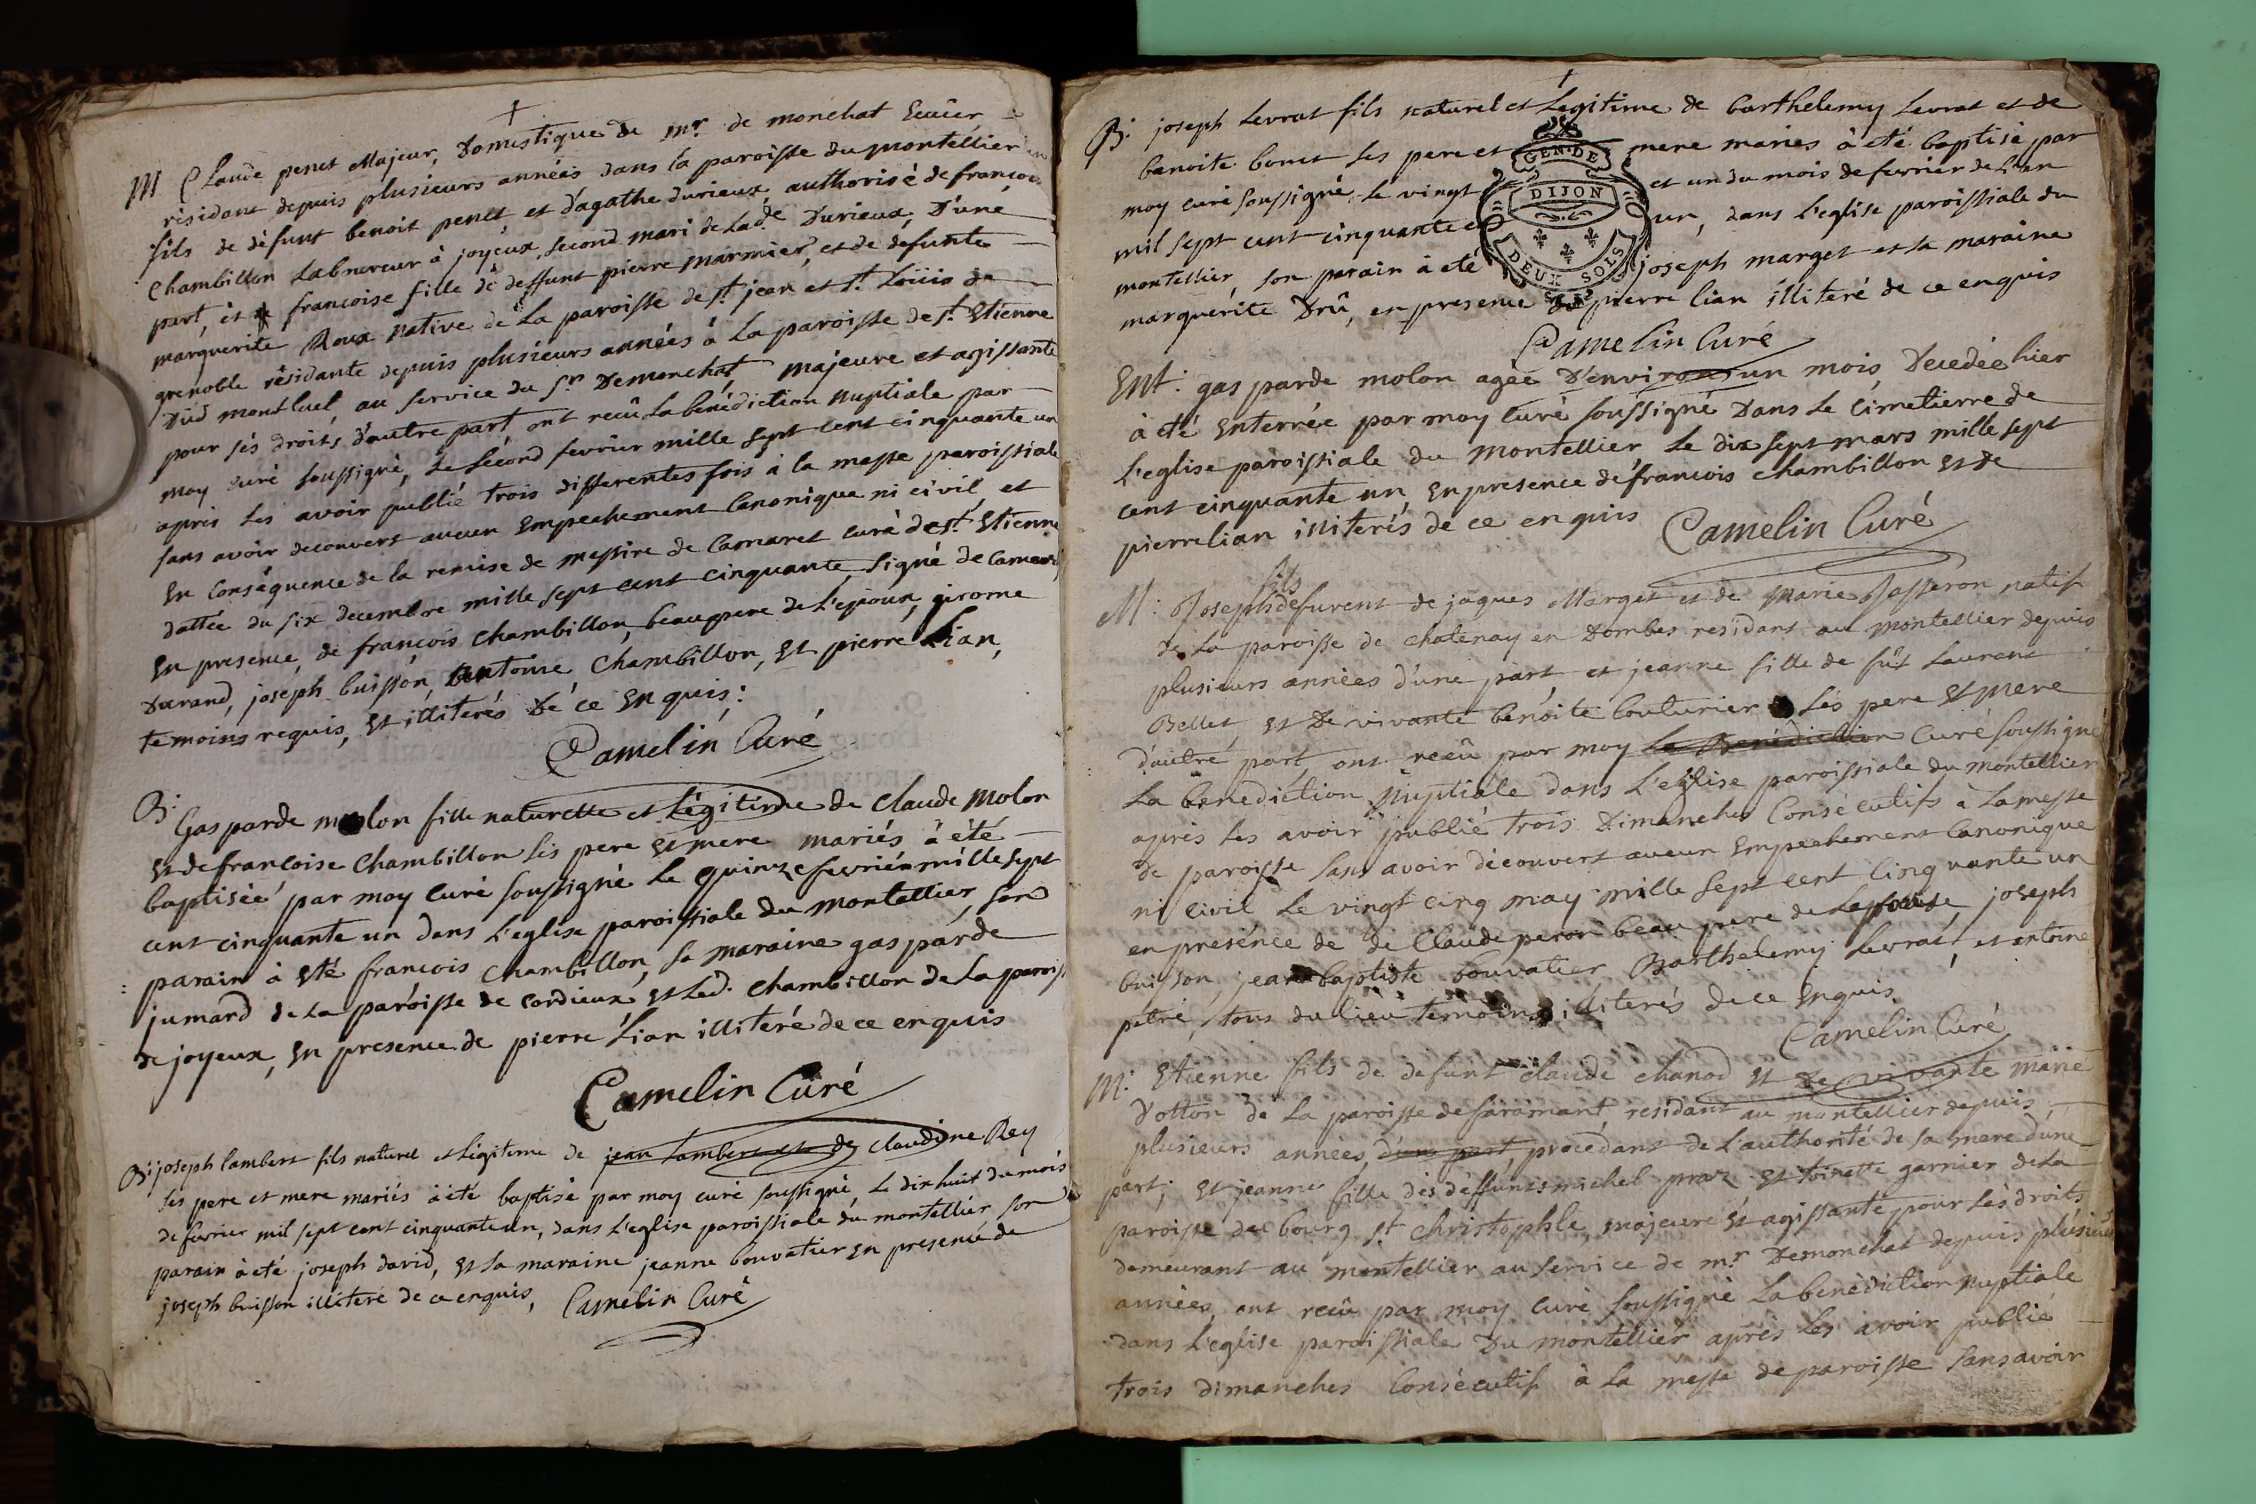 †
M Claude penet Majeur, Domestique de mr. de monchat Ecuïer
résidant depuis plusieurs années dans la paroisse du montellier
fils de défunt benoit penet et d'agathe durieux authorisé de françois
Chambillon Laboureur à joyeux, second mari de Lade. Durieux, D'une
part, et françoise fille de deffunt pierre marmier, et de defunte
marguerite Roux Native de La paroisse de st. jean et st. Loüis de
grenoble résidante depuis plusieurs années à La paroisse de st. Etienne
Dud montluel, au service du sr. Demonchat, majeure et agissante
pour sés droits, d'autre part ont reçû La bénédiction nuptiale par
moy curé soussigné, Le Second fevrier mille sept cent cinquante un
après Les avoir publié trois differentes fois à la messe paroissiale
sans avoir decouvert aucun Empechement Canonique ni civil, et
En conséquence de la remise de messire de Camaret curé de st. Etienne
dattée du six decembre mille sept cent cinquante, signé de Camaret
En presence, de françois Chambillon, beaupere de L'epoux, girome
Durand, joseph buisson, antoine Chambillon, Et pierre Lian,
temoins requis, Et illiterés De ce Enquis:
Camelin Curé
B: Gasparde molon fille naturelle et Légitime de Claude Molon
Et de francoise Chambillon sés pere Et mere mariés à été
baptisée par moy Curé soussigné Le quinze fevrier mille sept
cent cinquante un dans L'eglise paroissiale du montellier, son
parain à eté francois Chambillon, sa maraine gasparde
jumard de La paroisse de cordieux, et Lad. Chambillon de La paroisse
de joyeux, En presence de pierre Lian illiteré de ce enquis
Camelin Curé
B: joseph Lambert fils naturel et Légitime de jean Lambert et de Claudine Rey
sés pere et mere mariés à été baptisé par moy curé soussigné, Le dix huit du mois
de fevrier mil sept cent cinquante un, dans L'eglise paroissiale du montellier son
parain à eté joseph david, et sa maraine jeanne bouvatier en presence de
joseph buisson illiteré de ce enquis, Camelin Curé
†
B: joseph Levrat fils naturel et Legitime de barthelemy Levrat et de
benoite bonet ses pere et mere mariés à été baptisé par
moy curé soussigné, Le vingt et un du mois de fevrier de L'an
mil sept cent cinquante et un, dans L'eglise paroissiale du
montellier, son parain à eté joseph marget et sa maraine
marguerite Drû, en presence de pierre Lian illiteré de ce enquis
GEN. DE
DIJON
DEUX SOLS
Camelin Curé
Ent: gasparde molon agée D'environ un mois, Decedée hier
à eté Enterrée par moy Curé soussigné Dans Le Cimetierre de
L'eglise paroissiale du montellier Le dix sept mars mille sept
cent cinquante un, En presence de françois Chambillon Et de
pierre Lian illiterés de ce enquis Camelin Curé
M: Joseph fils defurent de jaques Marget et de Marie Josseron natif
de La paroisse de chatenay en Dombes residant au montellier depuis
plusieurs années d'une part, et jeanne fille de fût Laurent
Bellet, et De vivante benoite Couturier sés pere Et mere
d'autre part, ont reçû par moy La Bénédiction Curé soussigné
La benediction Nuptiale dans L'eglise paroissiale du montellier
après Les avoir publié trois Dimanches Consécutifs à La messe
de paroisse sans avoir découvert aucun Empechement Canonique
ni civil Le vingt cinq may mille sept cent Cinquante un
en presénce de de Claude peron beau pere de L'epouse, joseph
buisson, jean baptiste bouvatier Barthelemy Levrat, et antoine
petré, tous du Lieu temoins illiterés de ce Enquis.
Camelin Curé
M: Etienne fils de defunt claude chanod Et De vivante marie
Dotton de La paroisse de faramant, residant au montellier depuis
plusieurs années, d'une part, procédant de L'authorité de sa mere d'une
part; Et jeanne fille des deffunts michel praz Et toinette garnier de La
paroisse du bourg st. Christophle, majeure Et agissante pour sés droits
demeurant au montellier au service de mr. Demonchat depuis plusieurs
années, ont reçû par moy Curé soussigné La bénédiction nuptiale
dans L'eglise paroissiale Du montellier après Les avoir publié
trois dimanches Consécutifs à La messe de paroisse sans avoir